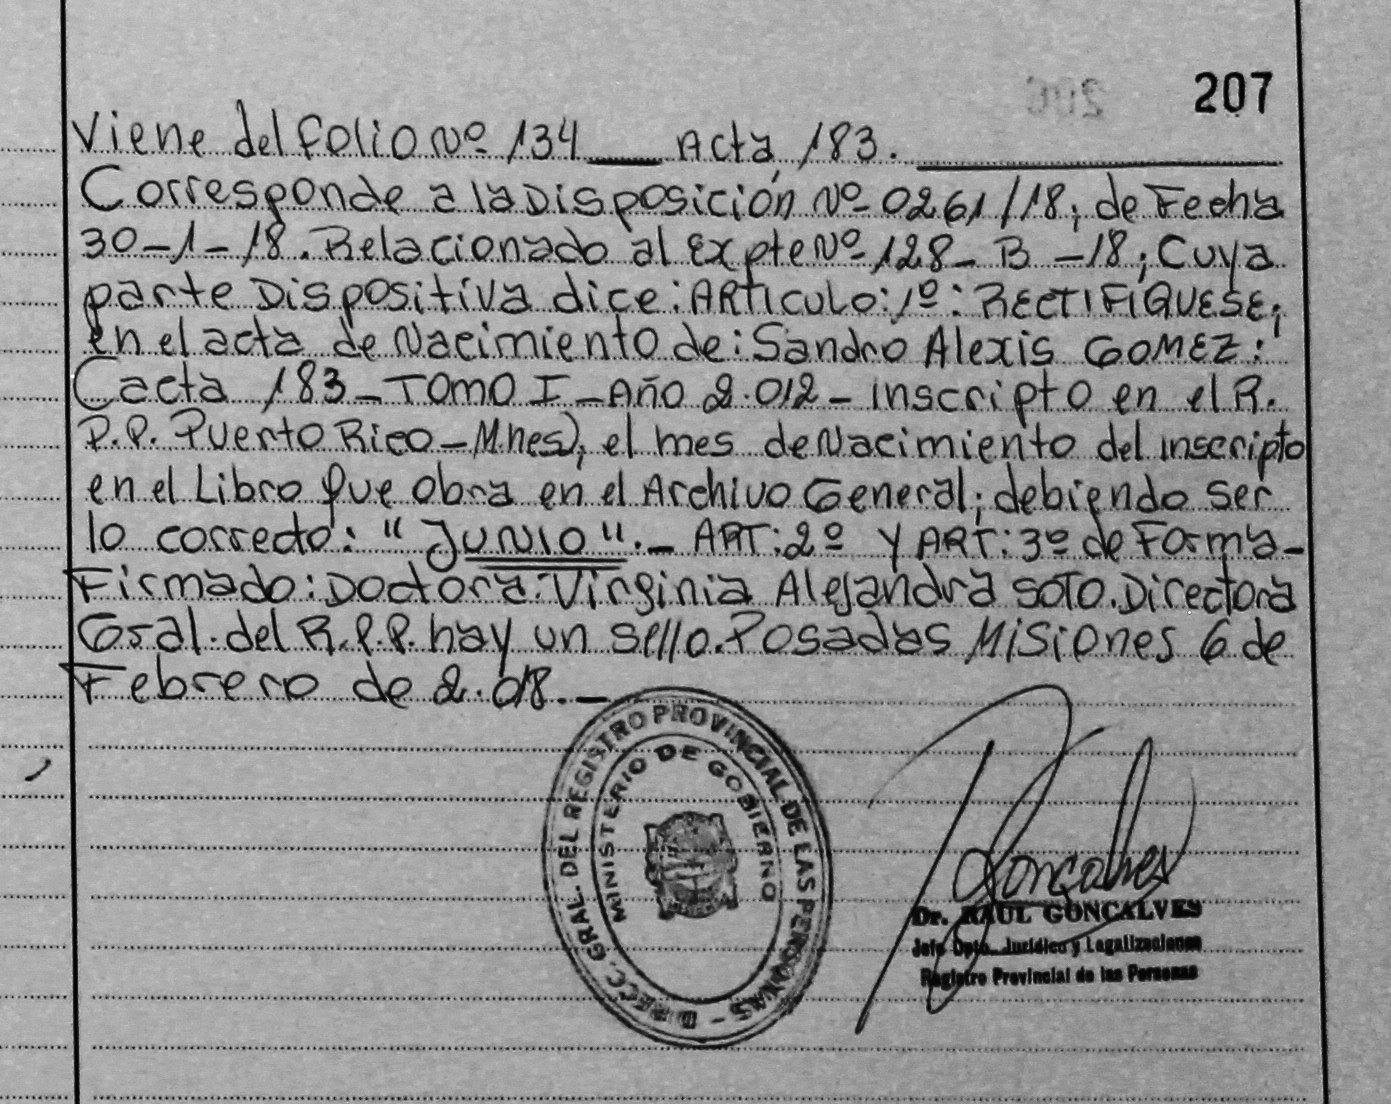 207
206
Viene del folio Nº 134 ___ Acta, 183. ___
Corresponde a la Disposición Nº 0261/18; de Fecha
30-1-18. Relacionado al Expte Nº 128- B -18; Cuya
parte Dispositiva dice: ARTICULO: 1º: RECTIFÍQUESE;
en el acta de Nacimiento de: Sandro Alexis GOMEZ:
(acta 183- TOMO I - Año 2.012 - inscripto en el R.
P.P. Puerto Rico - Mnes); el mes de Nacimiento del inscripto
en el Libro Que obra en el Archivo General; debiendo ser
lo correcto: "JUNIO".- ART: 2º Y ART: 3º de Forma-
Firmado: Doctora: Virginia Alejandra SOTO. Directora
Gral. del R.P.P. hay un sello. Posadas Misiones 6 de
Febrero de 2.018.-
DIRECC. GRAL. DEL REGISTRO PROVINCIAL DE LAS PERSONAS -
MINISTERIO DE GOBIERNO
Goncalves
Dr. RAUL GONCALVES
Jefe Dpto. Jurídico y Legalizaciones
Registro Provincial de las Personas